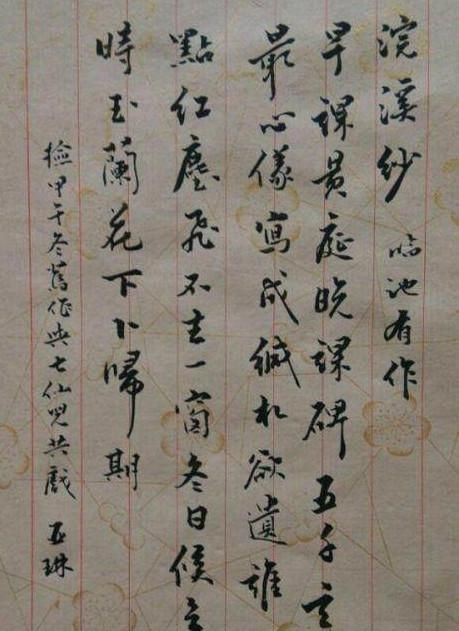 浣溪紗 臨池有作
早課黃庭晚課碑五千言
最心儀寫成緘札欲遺誰
點紅塵飛不去一窗冬日候
時玉蘭花下卜歸期
檢甲午冬舊作與七仙兒共戲 玉琳